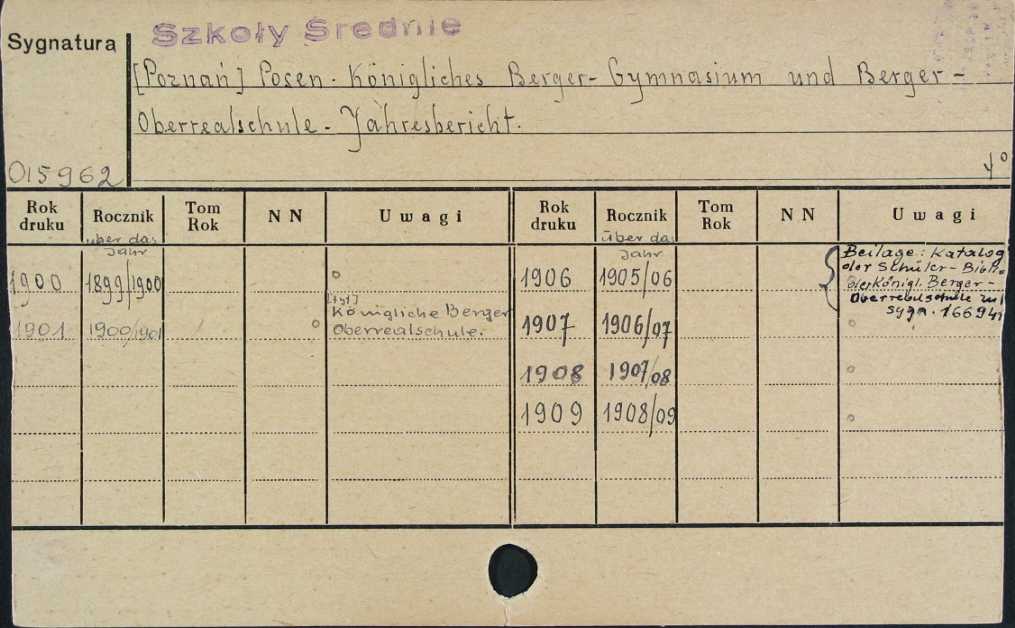 Szkoły Średnie
Sygnatura
[Poznań] Posen. Königliches Berger-Gymnasium und Berger-
Oberrealschule. Jahresbericht.
015962
4°
Rok druku Rocznik Tom Rok NN Uwagi Rok druku Rocznik Tom Rok NN Uwagi
über das Jahr über das Jahr
1900 1899/1900
1901 1900/1901 [tyt] Königliche Berger
Oberrealschule.
1906 1905/06 Beilage: Katalog
der Schüler-Bibl.
der Königl. Berger-
Oberrealschule
sygn. 16694
1907 1906/07
1908 1907/08
1909 1908/09